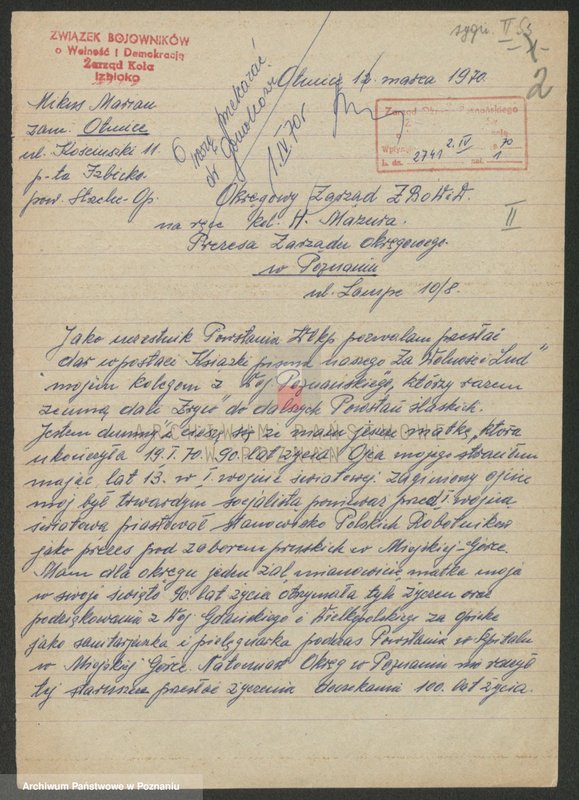 ZWIĄZEK BOJOWNIKÓW
o Wolność i Demokrację
Zarząd Koła
Izbicko
sygn. II 53
2
Otmice 12 marca 1970.
Mikus Marian
zam. Otmice
ul. Kosciuszki 11.
p-ta Izbicko.
pow. Strzelce-Op.
proszę przekazać
dr
1.IV.70r
Zarząd Okręgu Poznańskiego
Wpłynęło 2.IV 70
L. dz. 2741 zał. 1
II
Okręgowy Zarząd ZBoWiD.
na ręce kol. H. Mazura.
Prezesa Zarządu Okręgowego.
w Poznaniu
ul. Lampe 10/8.
Jako uczestnik Powstania Wlkp pozwalam przesłać
dar w postaci Książki pisma naszego Za Wolność i Lud"
mojem kolegom z Woj. Poznańskiego, którzy razem
zemną dali Zryw" do dalszych Powstań śląskich.
Jestem dumny i cieszę się że mam jeszcze matkę, która
ukończyła 19.I.70. 90. lat życia. Ojca mojego straciłem
mając lat 13. w I. wojnie światowej. zaginiony ojciec
mój był twardym socjalistą ponieważ przed I wojną
światową piastował stanowisko Polskich Robotników
jako prezes pod zaborem pruskich w Miejskiej-Górce.
Mam dla okręgu jeden żal mianowicie matka moja
w swoje święto 90. lat życia otrzymała tyle życzeń oraz
podziękowania z Woj. Gdańskiego i Wielkopolskiego za opiekę
jako sanitarjuszka i pielęgniarka podczas Powstania w szpitalu
w Miejskiej Górce. Natomiast Okręg w Poznaniu nie raczył
tej staruszce przesłać życzenia doczekania 100. lat życia.
ARCHIWUM PAŃSTWOWE
W POZNANIU
Archiwum Państwowe w Poznaniu